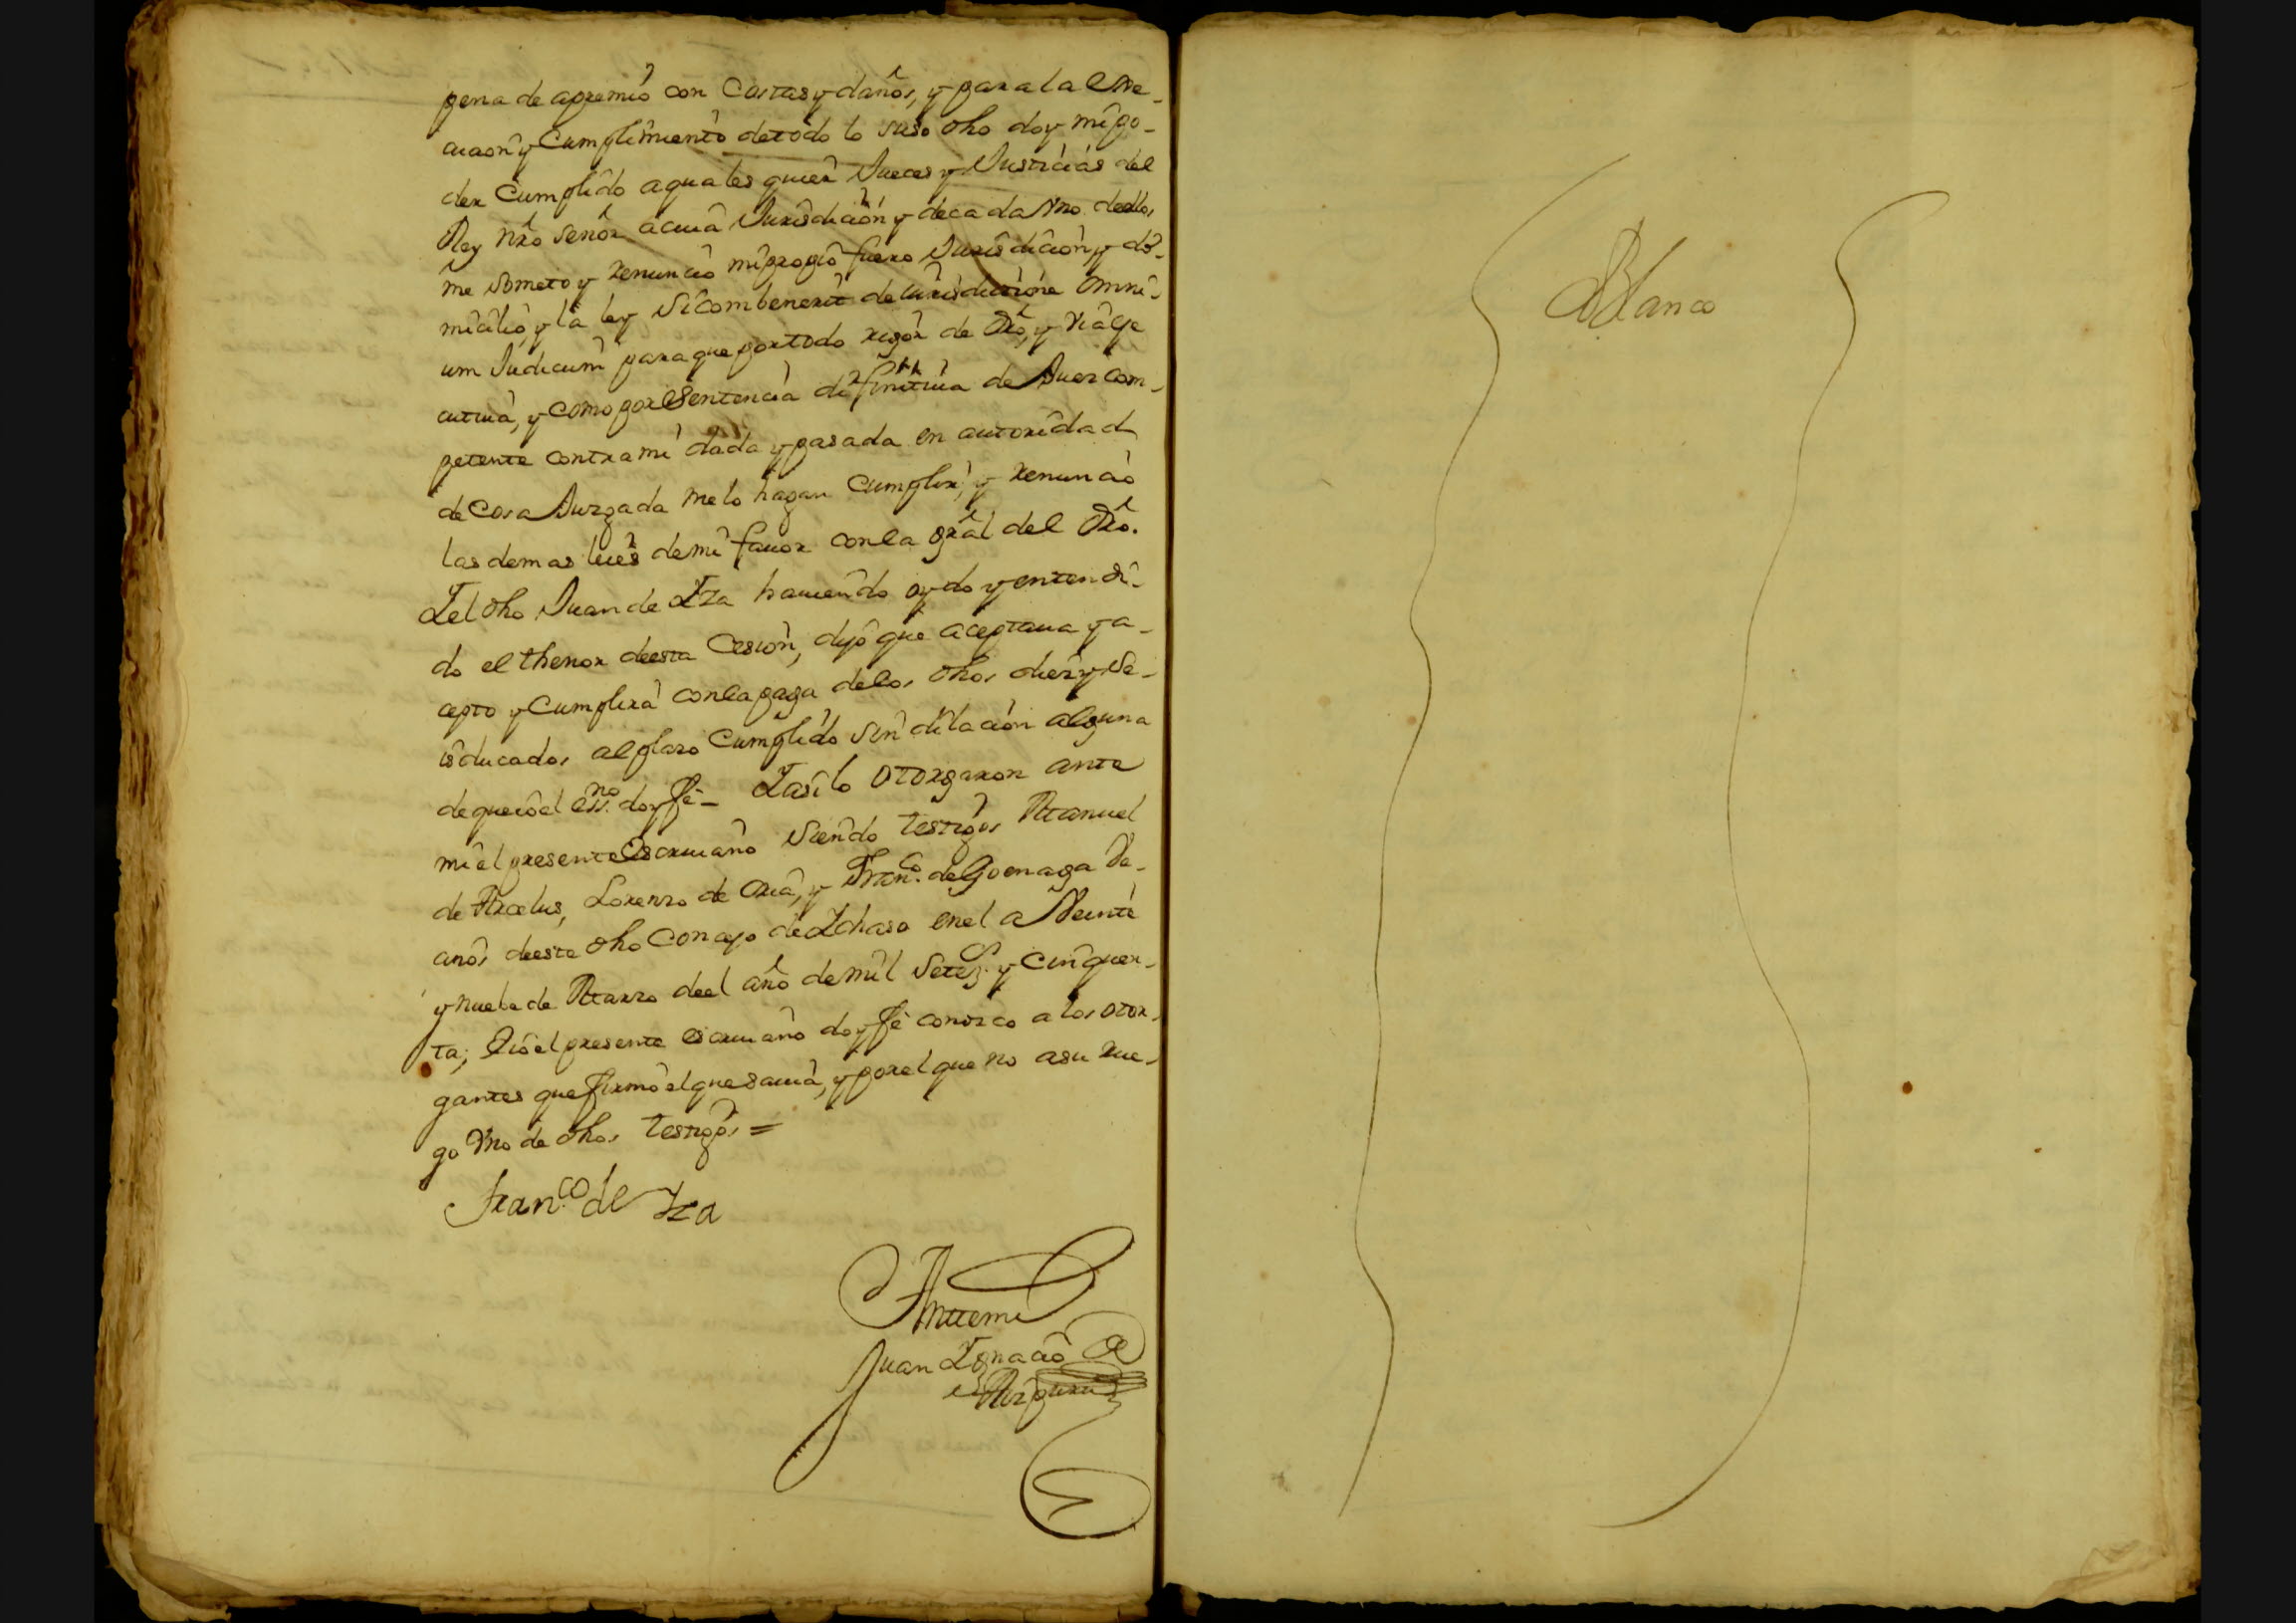 pena de apremio con costas y daños, y para la exe-
cucion y Cumplimiento detodo lo suso dho doy mi po-
der Cumplido aquales quier Jueces y Justicias del
Rey nrõ señor acuia Jurisdicion y decada Vno dellos
me someto y renuncio mi propio fuero Jurisdicion, y do-
micilio, y la ley Sicombenerit de iurisdictione Omni-
um Judicum para que por todo rigor de Drõ, y via exe
cutiua, y como por Sentencia difinitiua de Juez com-
petente contra mi dada y pasada en autoridad
de Cosa Juzgada melo hagan Cumplir, y renuncio
las demas leies demi fauor con la grãl del Drõ.
Y el dho Juan de Yza hauiendo oydo y entendi-
do el thenor deesta Cesion, dijo que aceptaua y a-
cepto y Cumplira con la paga delos dhos diez y se-
is ducados al plazo Cumplido sin dilacion alguna
de que io el essno. doy fe - Y asi lo otorgaron ante
mi el presente Escriuano Siendo testigos Manuel
de Arcelus, Lorenzo de Oria, y Franco. de Goenaga Ve-
cinos deeste dho Concejo de Ychaso en el a Veinte
y nuebe de Marzo deel año de mil Setez.s y Cinquen-
ta; E io el presente escriuano doy fe conozco a los otor-
gantes que firmo el que sauia, y por el que no asu rue-
go Vno de dhos testigos =
Franco. de Yza
Antemi
Juan Ygnacio de
Blanco